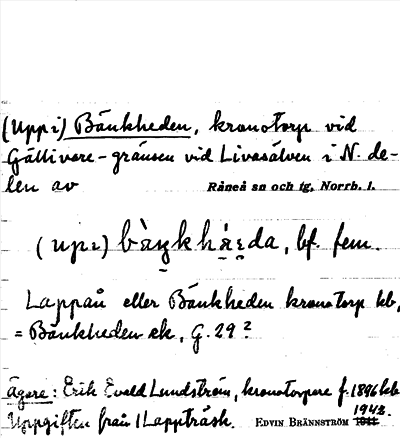 (uppi) Bänkheden, kronotorp vid
Gällivare-gränsen vid Livasälven i N. de-
len av Råneå sn och tg, Norrb. l.
(upi) bf. fem.
Lappån eller Bänkheden kronotorp kb,
= Bänkheden ek, G. 29?
ägare: Erik Evald Lundström, kronotorpare f. 1896 kb
Uppgiften från 1 Lappträsk. EDVIN BRÄNNSTRÖM 1943.